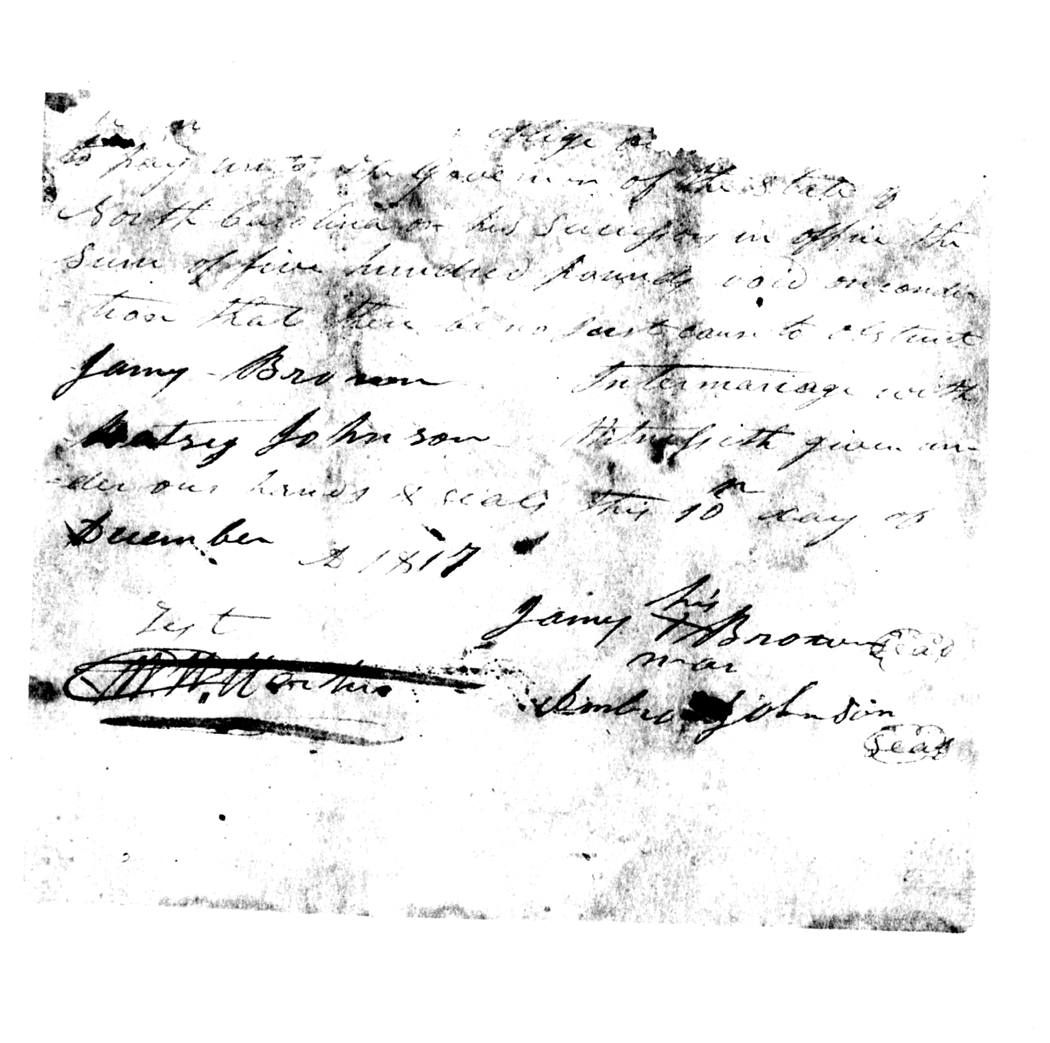 oblige
to pay unto the Governor of the State of
North Carolina or his Successors in office the
Sum of five hundred pounds void on condi
-tion that there be no just cause to obstruct
Jamy Brown Intermariage with
Batsey Johnson Witnesseth given un-
-der our hands & seals this 10th day of
December AD 1817
Test
his
Jamy H Brown seal
mar
Johnson
seal